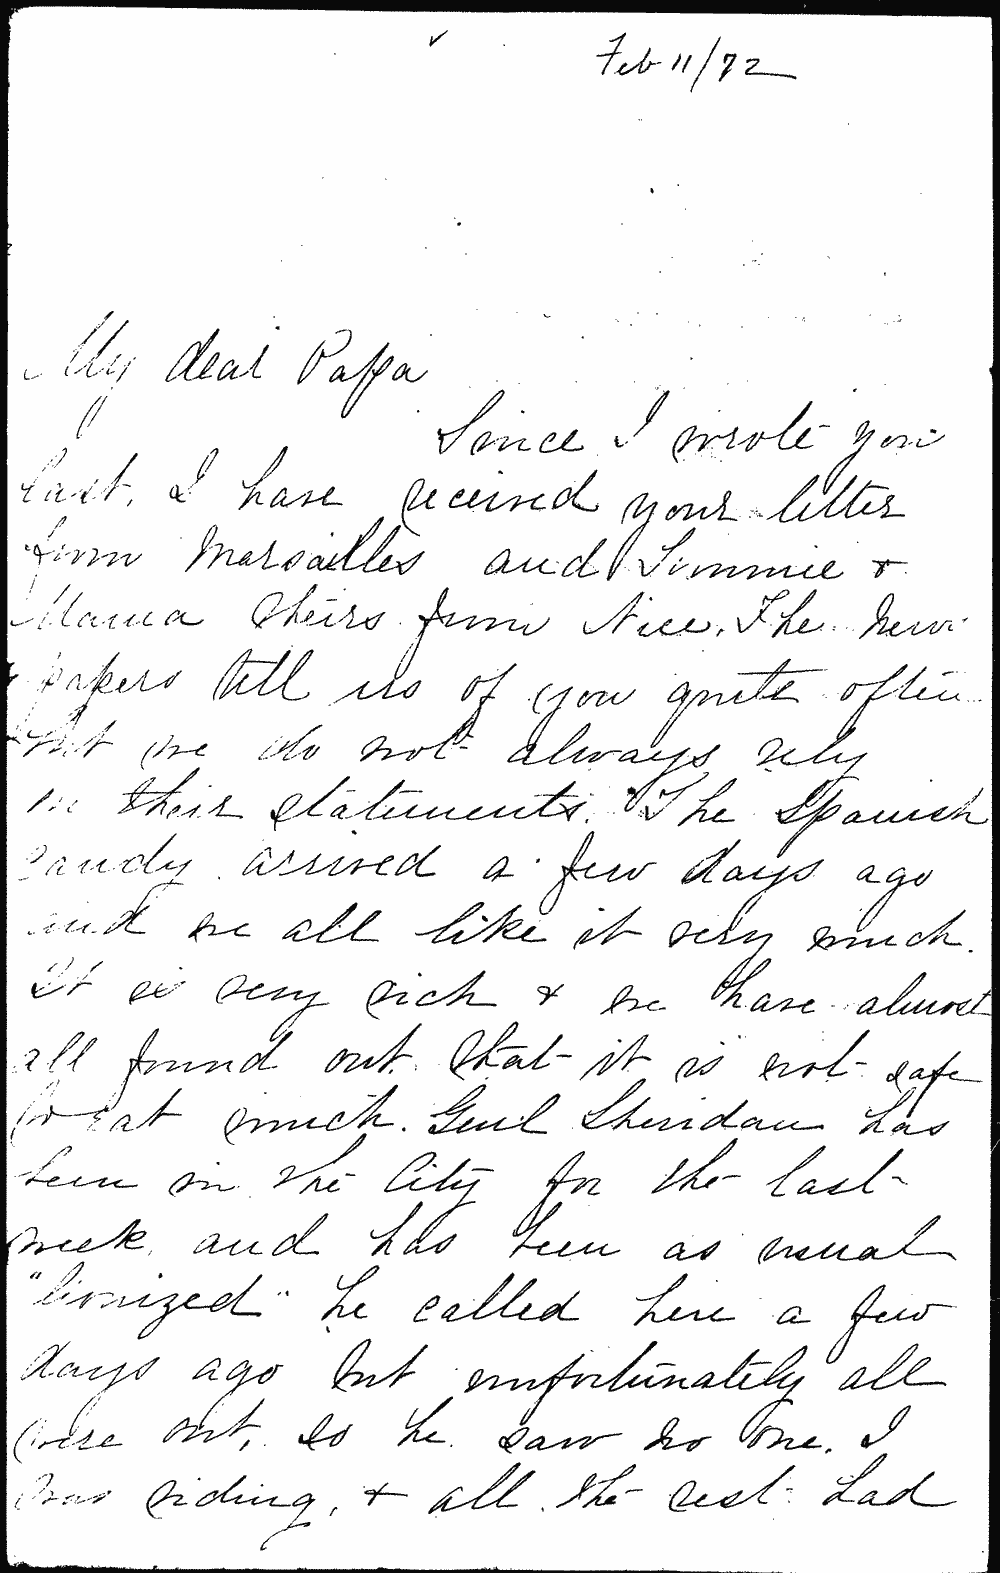 Feb 11/72
My dear Papa
Since I wrote you
last, I have received your letter
from Marsailles and Simmie &
Mama theirs from Nice. The news
papers tell us of you quite often
but we do not always rely
on their statements. The Spanish
candy arrived a few days ago
and we all like it very much.
It is very rich & we have almost
all found out that it is not safe
to eat much. Genl Sheridan has
been in the City for the last
week and has been as usual
"lionized" he called here a few
days ago but unfortunately all
were out, so he saw no one. I
was riding, & all the rest had